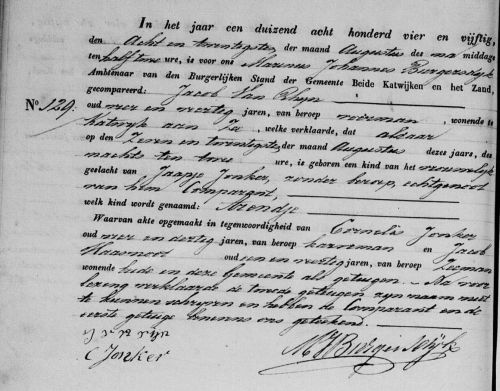 In het jaar een duizend acht honderd vier en vijftig,
den Acht en twintigsten der maand Augustus des na middags
ten half twee ure, is voor ons Marinus Johannes Burgersdijk
Ambtenaar van den Burgerlijken Stand der Gemeente Beide Katwijken en het Zand,
gecompareerd: Jacob Van Rhijn
No. 129. oud vier en veertig jaren, van beroep wonende te
Katwijk aan Zee, welke verklaarde, dat alhaar
op den Zeven en twintigsten der maand Augustus dezes jaars, des
nachts ten twee ure, is geboren een kind van het vrouwelijk
geslacht van Jaapje Jonker, zonder beroep, echtgenoot
van hem Comparant,
welk kind wordt genaamd: Arendje
Waarvan akte opgemaakt in tegenwoordigheid van Cornelis Jonker
oud vier en dertig jaren, van beroep en Jacob
oud en veertig jaren, van beroep Zeeman
wonende beide in deze Gemeente als getuigen. Na voor
lezing verklaarde de tweede getuigen zijn naam niet
te kunnen schrijven en hebben de Comparant en de
eerste getuige benevens ons geteekend.
C Jonker
MJ Burgersdijk